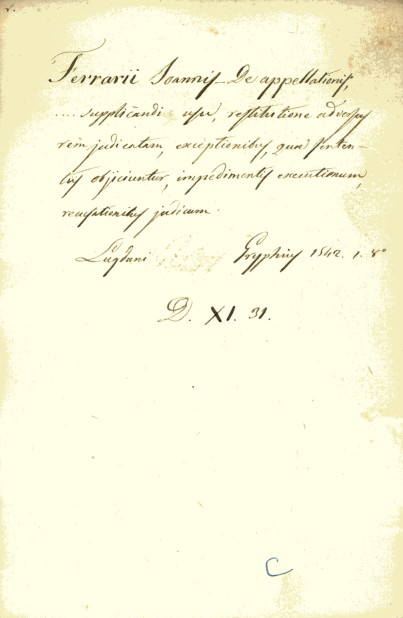 Ferrarii Joannis – De appellationis,
.... supplicandi usu, restitutione adversus
rem judicatam, exceptionibus, quae senten-
tiis objiciuntur, impedimentis executionum,
recusationibus judicum.
Lugduni Gryphius 1542. 1. 8°
D. XI. 31.
C